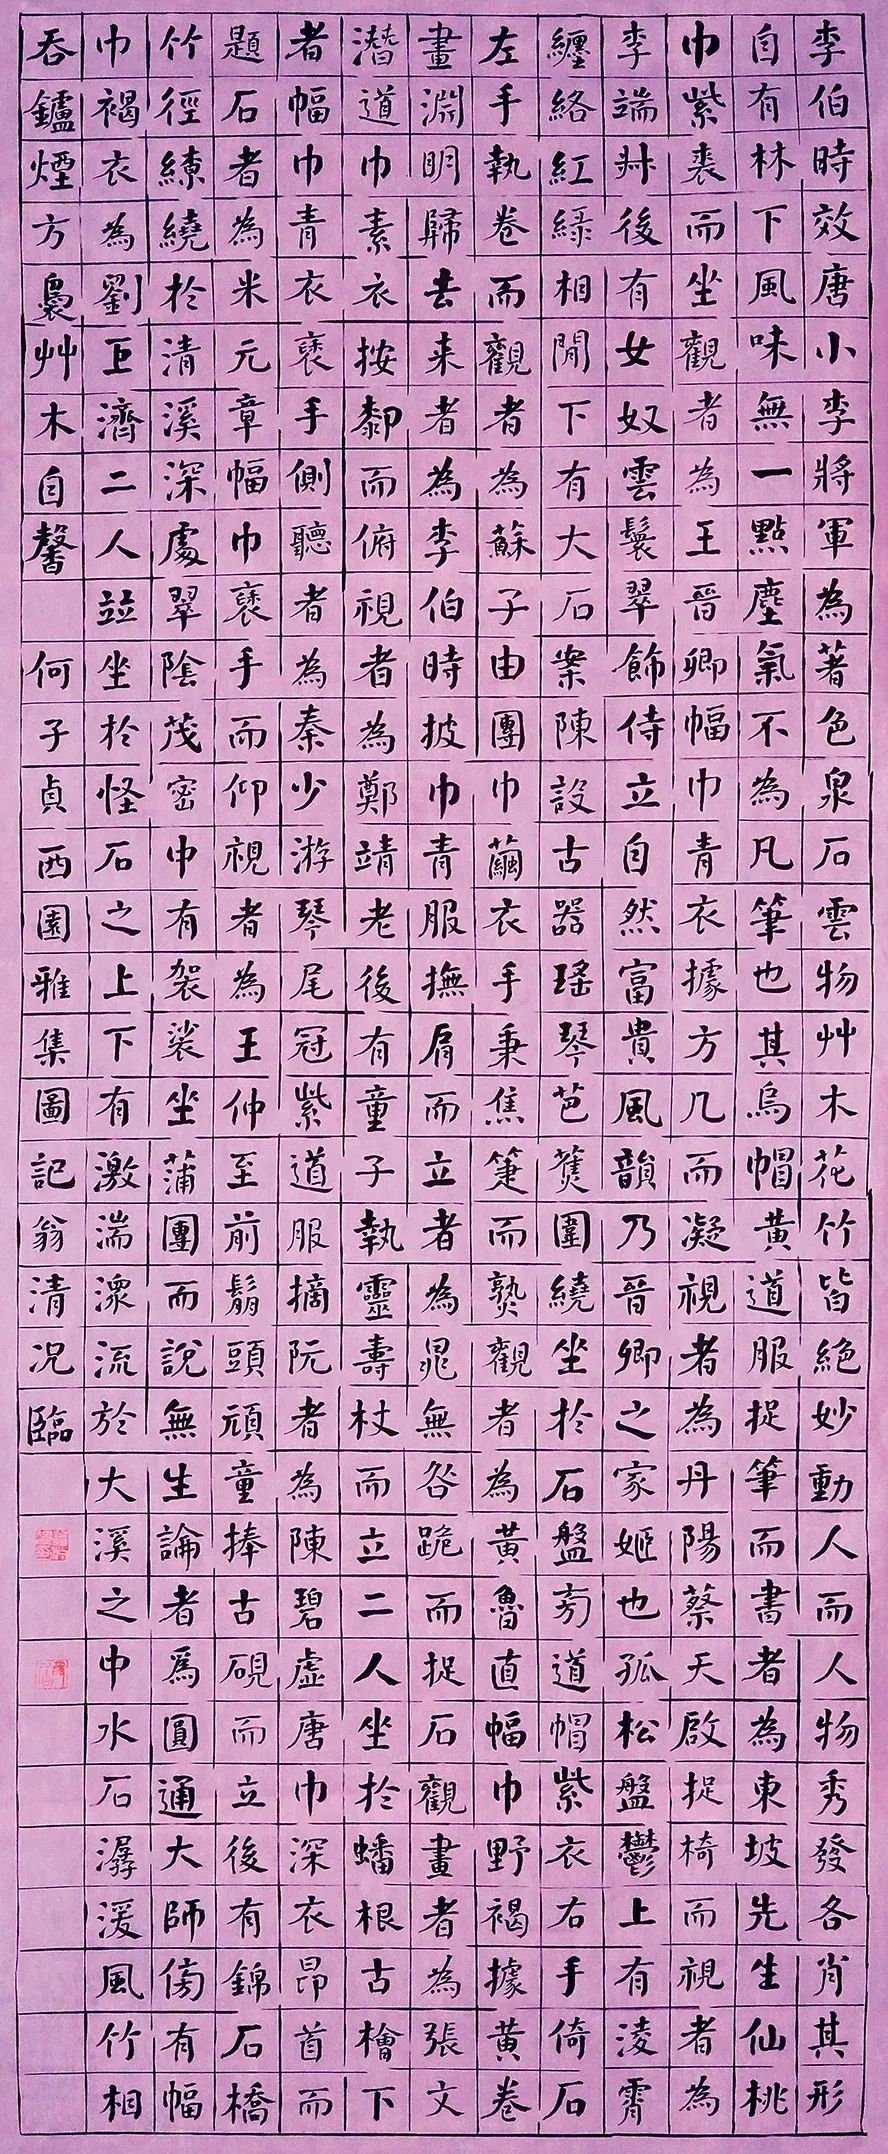 李伯時效唐小李將軍為著色泉石雲物艸木花竹皆絕妙動人而人物秀發各肖其形
自有林下風味無一點塵氣不為凡筆也其烏帽黃道服捉筆而書者為東坡先生仙桃
巾紫裘而坐觀者為王晉卿幅巾青衣據方几而凝視者為丹陽蔡天啟捉椅而視者為
李端叔後有女奴雲鬟翠飾侍立自然富貴風韻乃晉卿之家姬也孤松盤鬱上有淩霄
纏絡紅綠相間下有大石案陳設古器瑤琴芭蕉圍繞坐於石盤旁道帽紫衣右手倚石
左手執卷而觀者為蘇子由團巾繭衣手秉焦箑而熟觀者為黃魯直幅巾野褐據黃卷
畫淵明歸去来者為李伯時披巾青服撫肩而立者為晁無咎跪而捉石觀畫者為張文
潛道巾素衣按膝而俯視者為鄭靖老後有童子執靈壽杖而立二人坐於蟠根古檜下
者幅巾青衣褎手側聽者為秦少游琴尾冠紫道服摘阮者為陳碧虛唐巾深衣昂首而
題石者為米元章幅巾褎手而仰視者為王仲至前鬅頭頑童捧古硯而立後有錦石橋
竹徑繚繞於清溪深處翠陰茂密中有袈裟坐蒲團而說無生論者爲圓通大師傍有幅
巾褐衣為劉巨濟二人竝坐於怪石之上下有激湍潀流於大溪之中水石潺湲風竹相
吞鑪煙方裊艸木自馨 何子貞西園雅集圖記翁清況臨